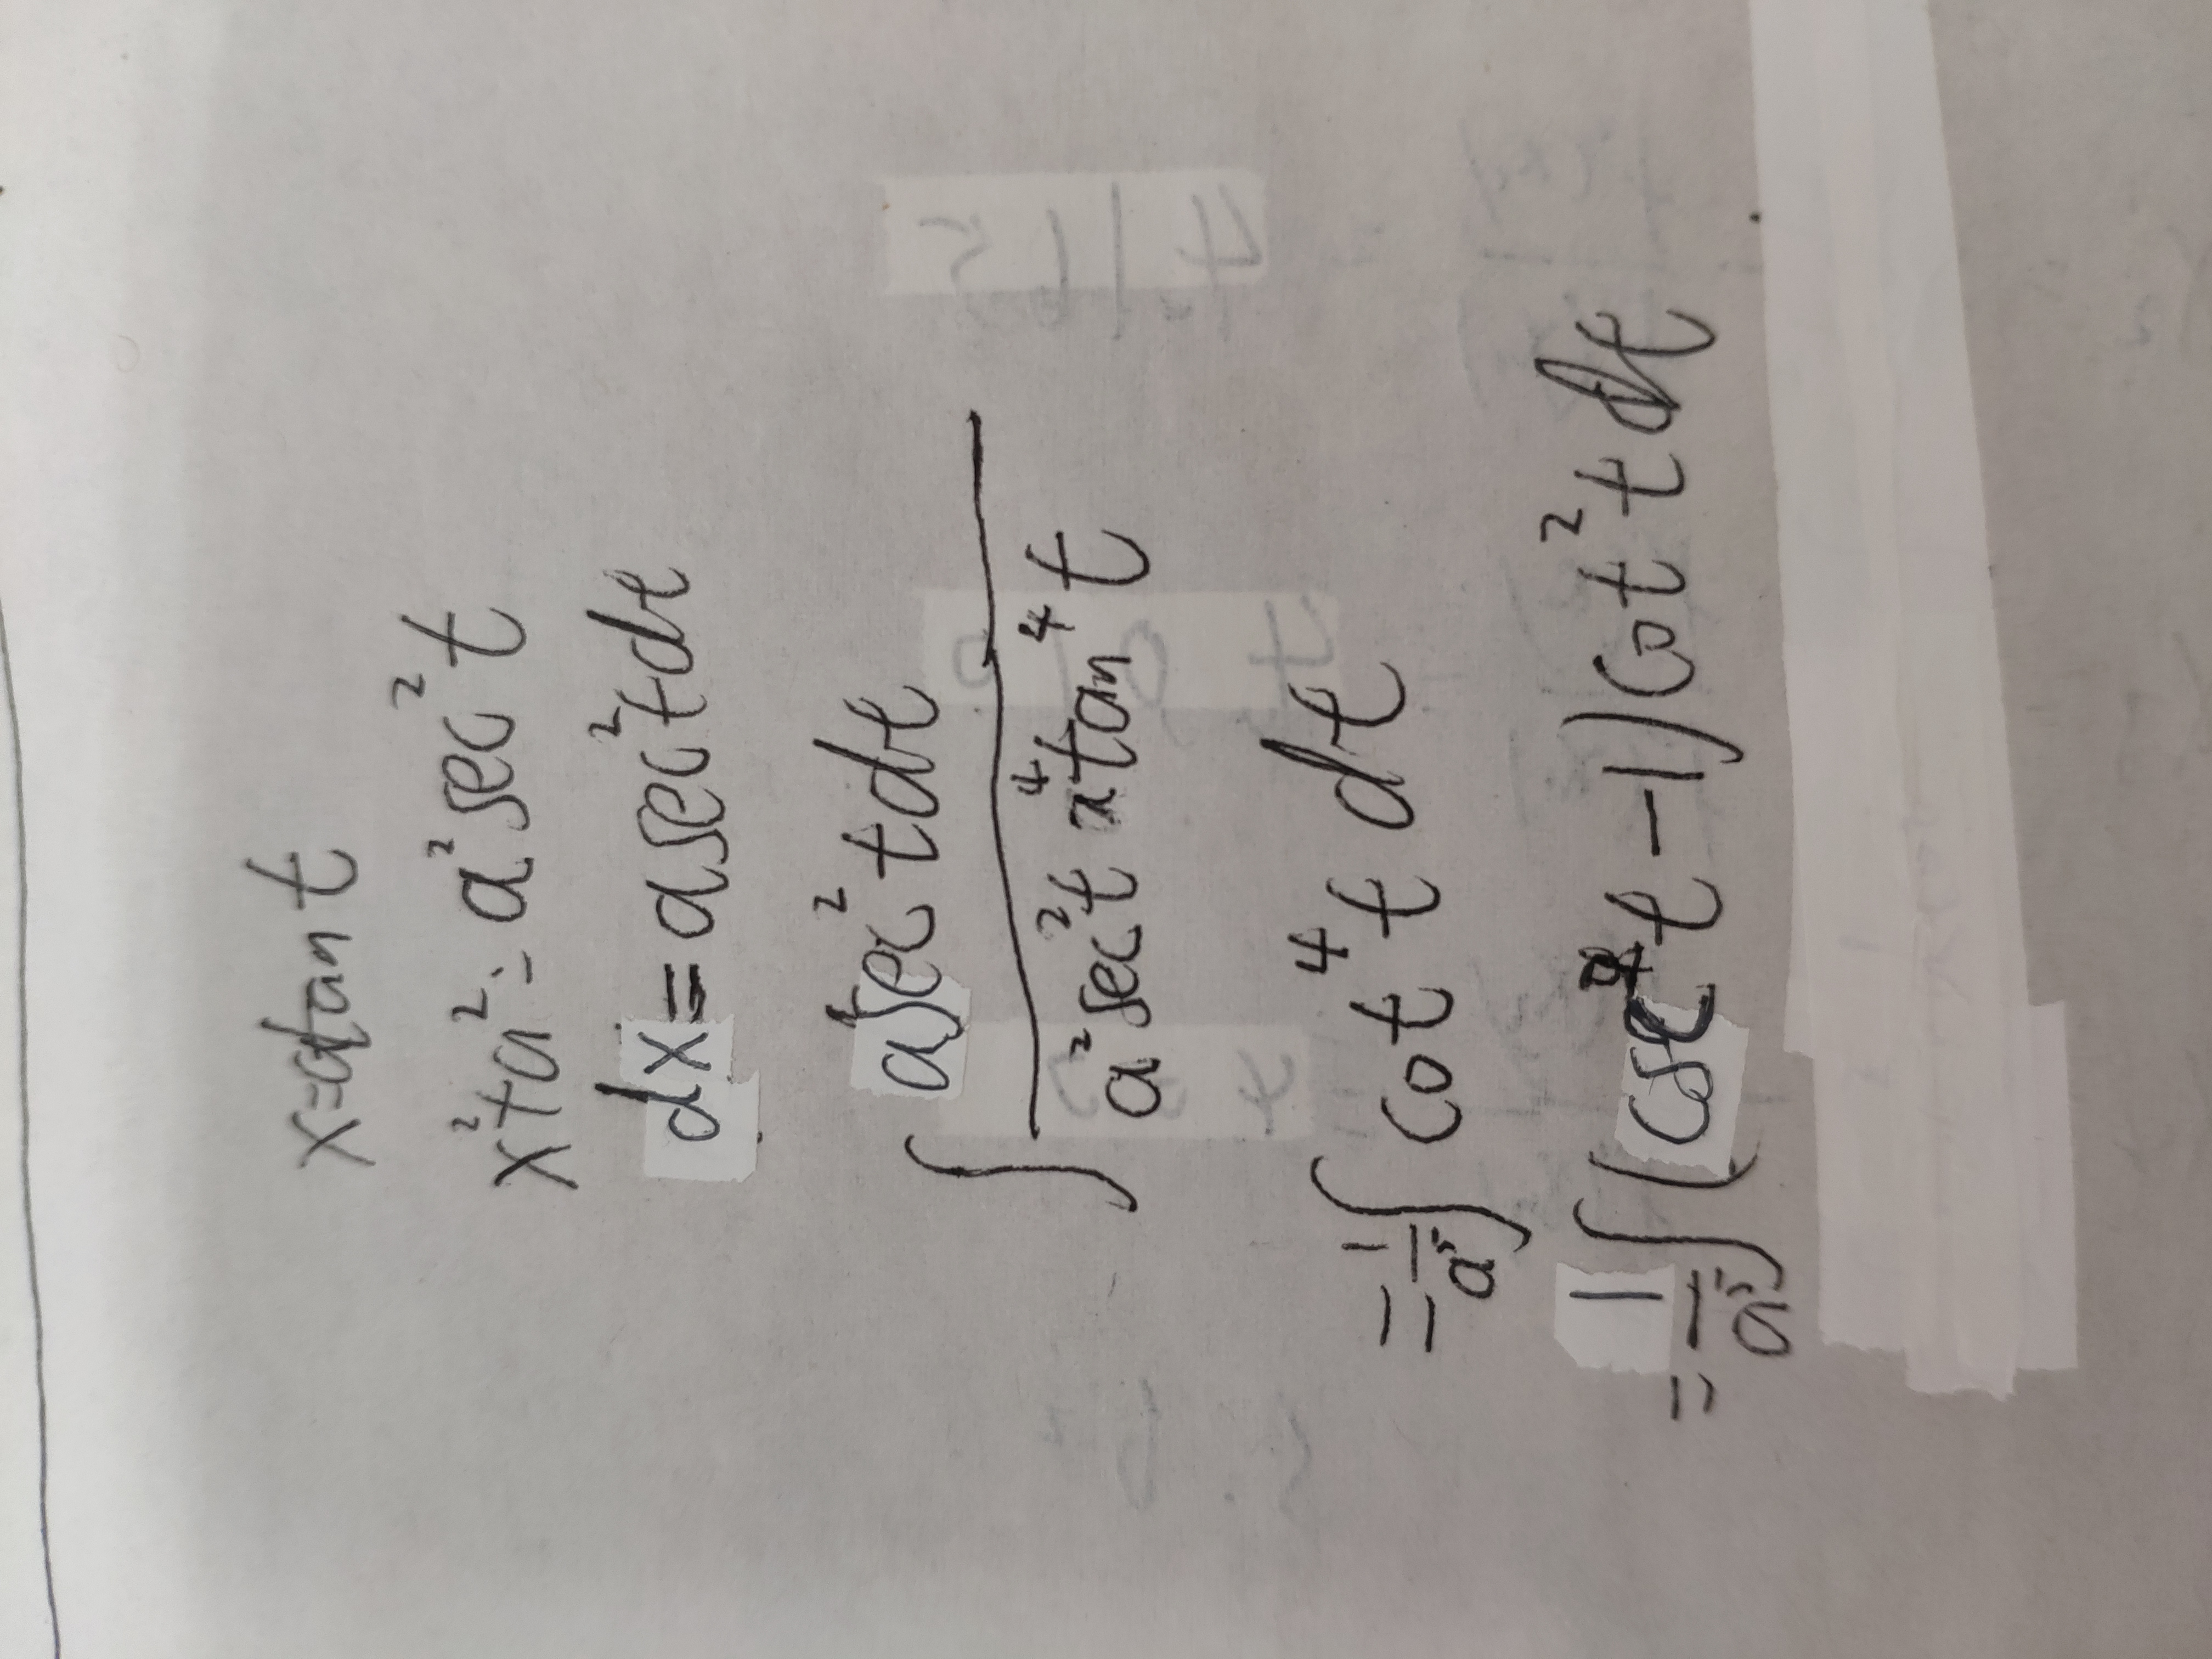 x=atan t
x²+a²=a²sec²t
dx=asec²tdt
∫ asec²tdt / a²sec²t a⁴tan⁴t
=1/a⁵ ∫ cot⁴t dt
=1/a⁵ ∫ (csc²t-1)cot²t dt